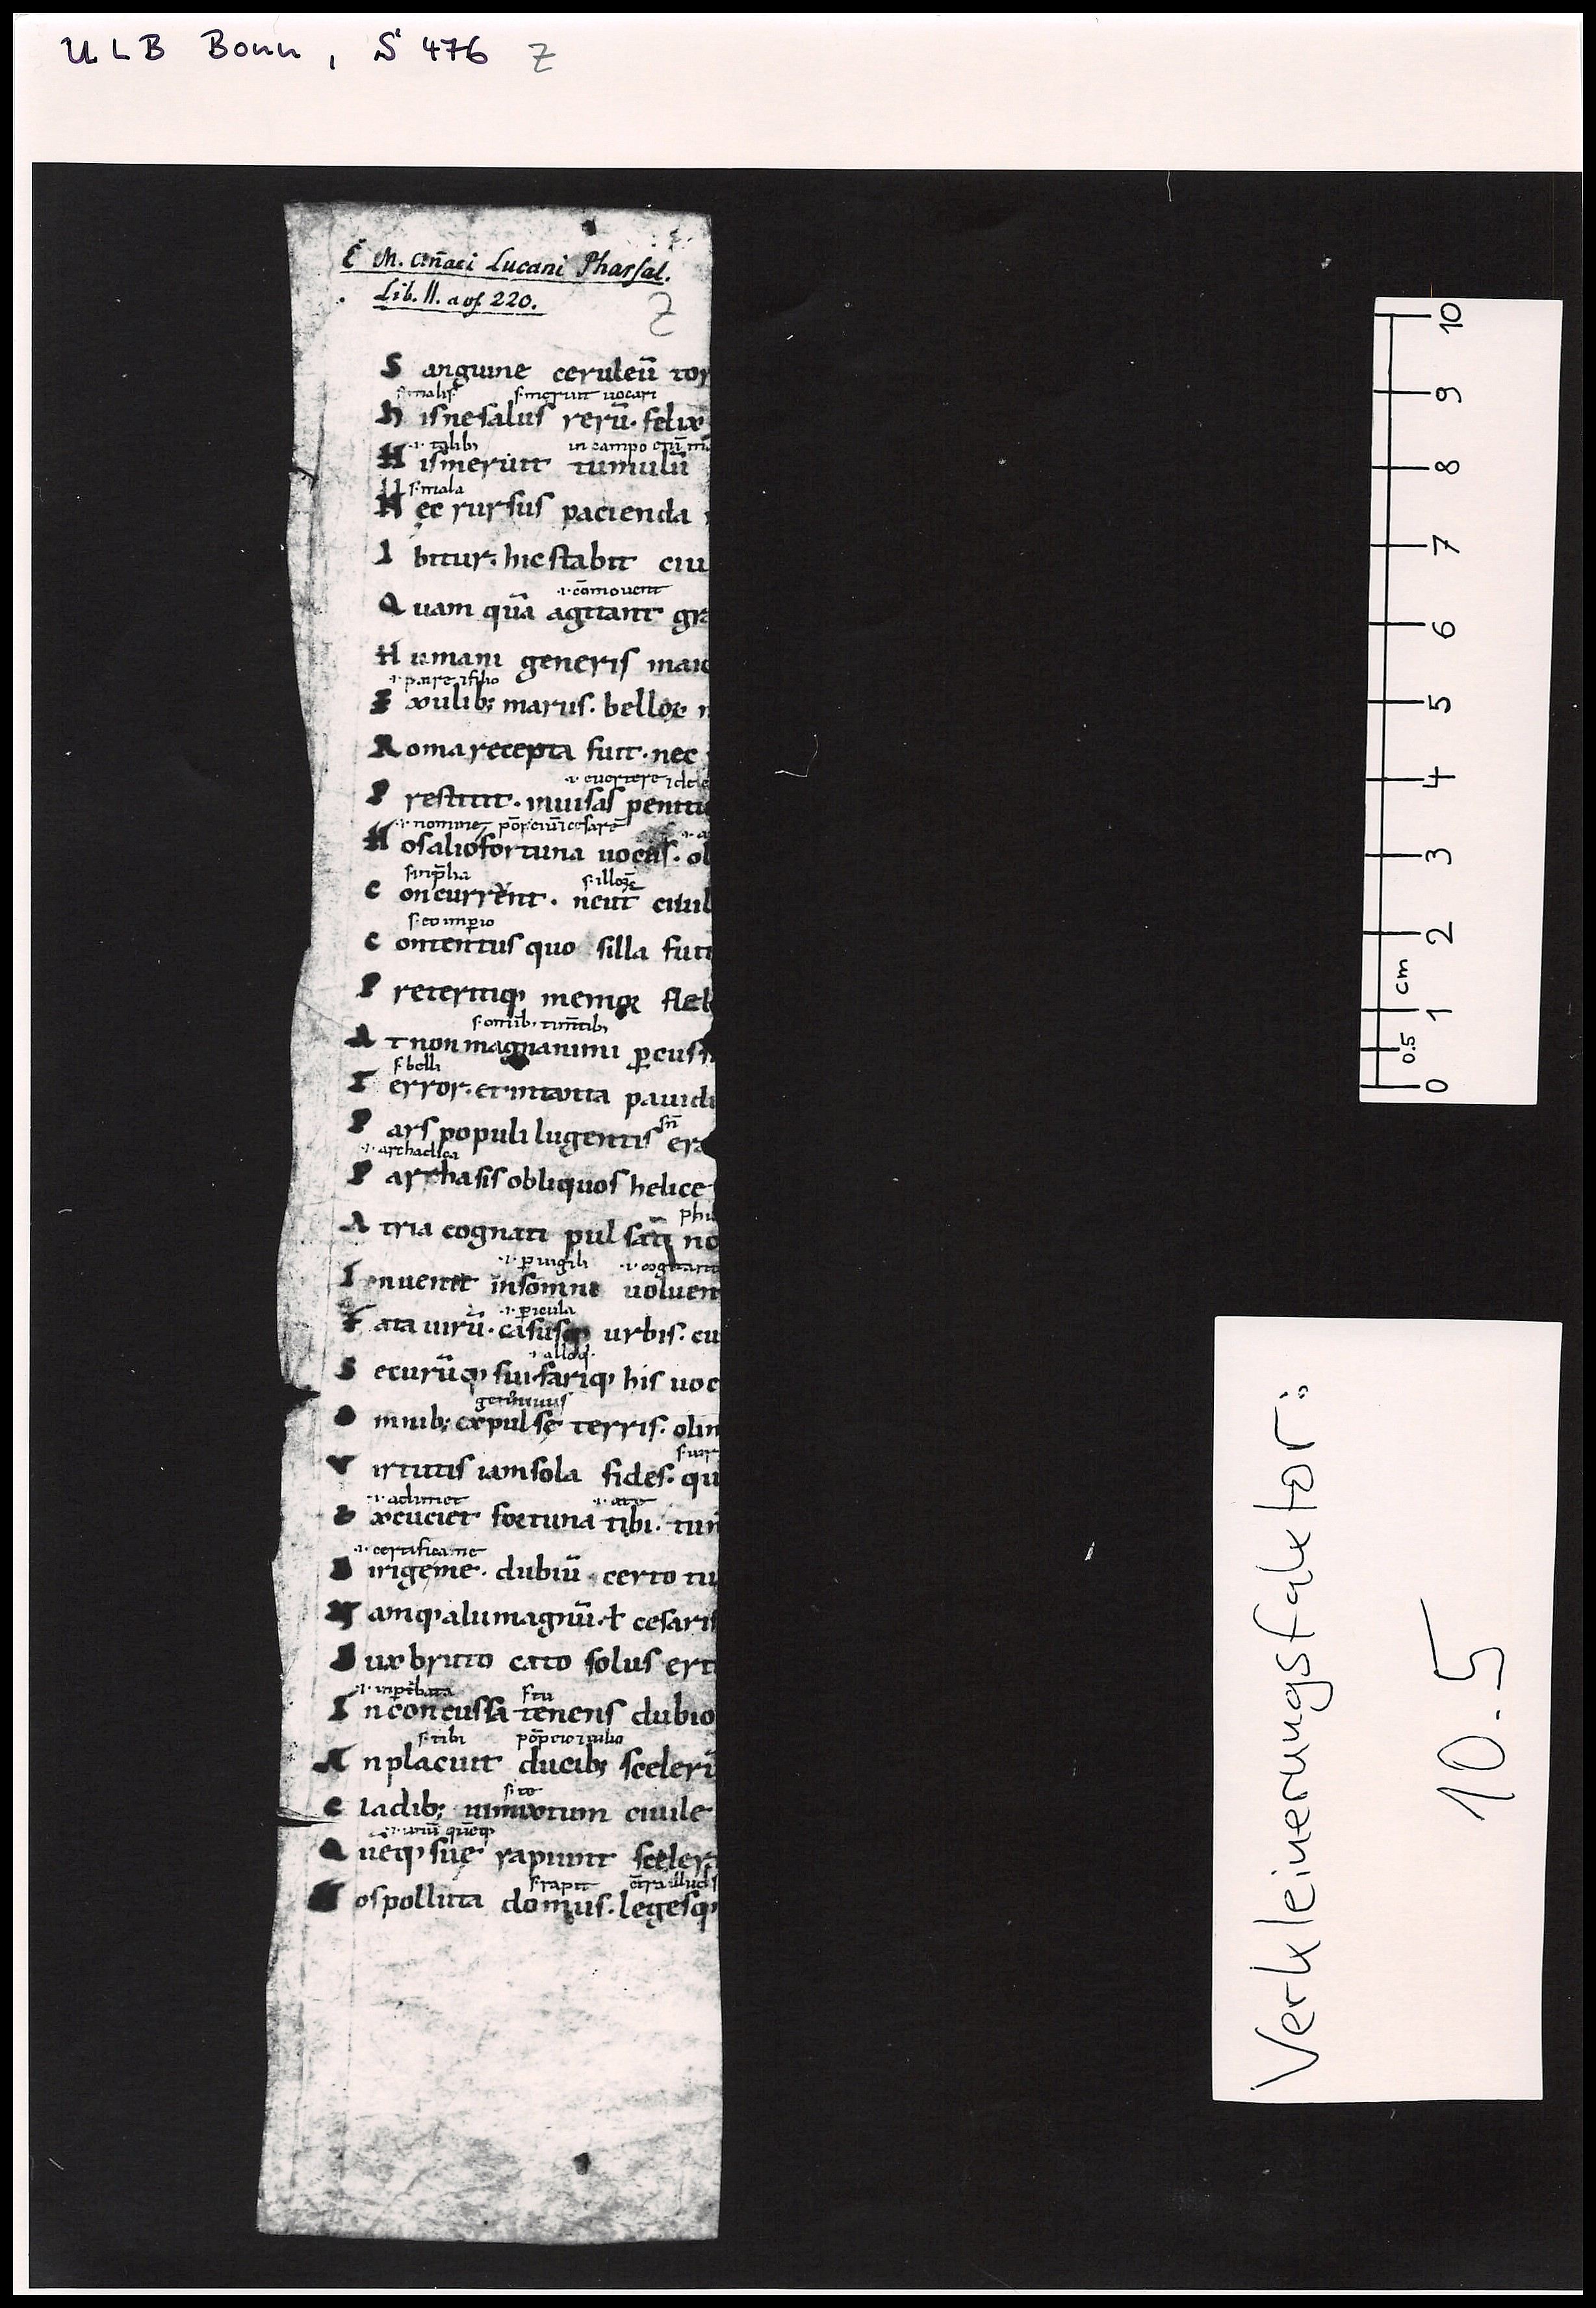 ULB Bonn, S 476 Z
E M. Annaei Lucani Pharsal.
Lib. II. a vs. 220.
Z
S anguine ceruleū tor
s. malis s. meruit uocari
h isne salus rerū. felix
.i. talib; in campo
H is meruit tumulū
s. mala
H ec rursus pacienda
I bitur. hic stabit ciu
.i. cōmouent
Q uam quā agitant gr
H umani generis maio
.i. patre
E xulib; marius. bellor
R oma recepta fuit. nec
.i. euertere
P restitit. inuisas penitu
.i. nomine
H os alio fortuna uocas. ol
C oncurrent. neut ciuil
s. eo impio
C ontentus quo silla fuit
P reteritiq; memor fleb
s. omib. timētib;
A t non magnanimi ꝑcussi
s. belli
T error. et in tanta pauidi
sn̄
P ars populi lugentis era
P arrhasis obliquos helice
A tria cognati pulsat̄ no
.i. ꝑuigili .i. cogitant
I nuenit insomni uoluen
.i. ꝑicula
F ata uirū. casusq; urbis. cu
S ecurūq; sui. fariq; his uoc
O mnib; expulsę terris. olim
V irtutis iam sola fides. qu
E xcuciet fortuna tibi. tu m
.i. certifica me
D irige me. dubiū. certo tu
N amq; alii magnū. ł cesaris
D ux bruto cato solus erit
s. tu
I nconcussa tenens dubio
s. tibi
A n placuit ducib; sceleri
C ladib; inmixtum ciuile
Q ueq; suę rapiunt sceler
s. rapit
H os polluta domus. legesq;
0 0.5 1 cm 2 3 4 5 6 7 8 9 10
Verkleinerungsfaktor:
10.5